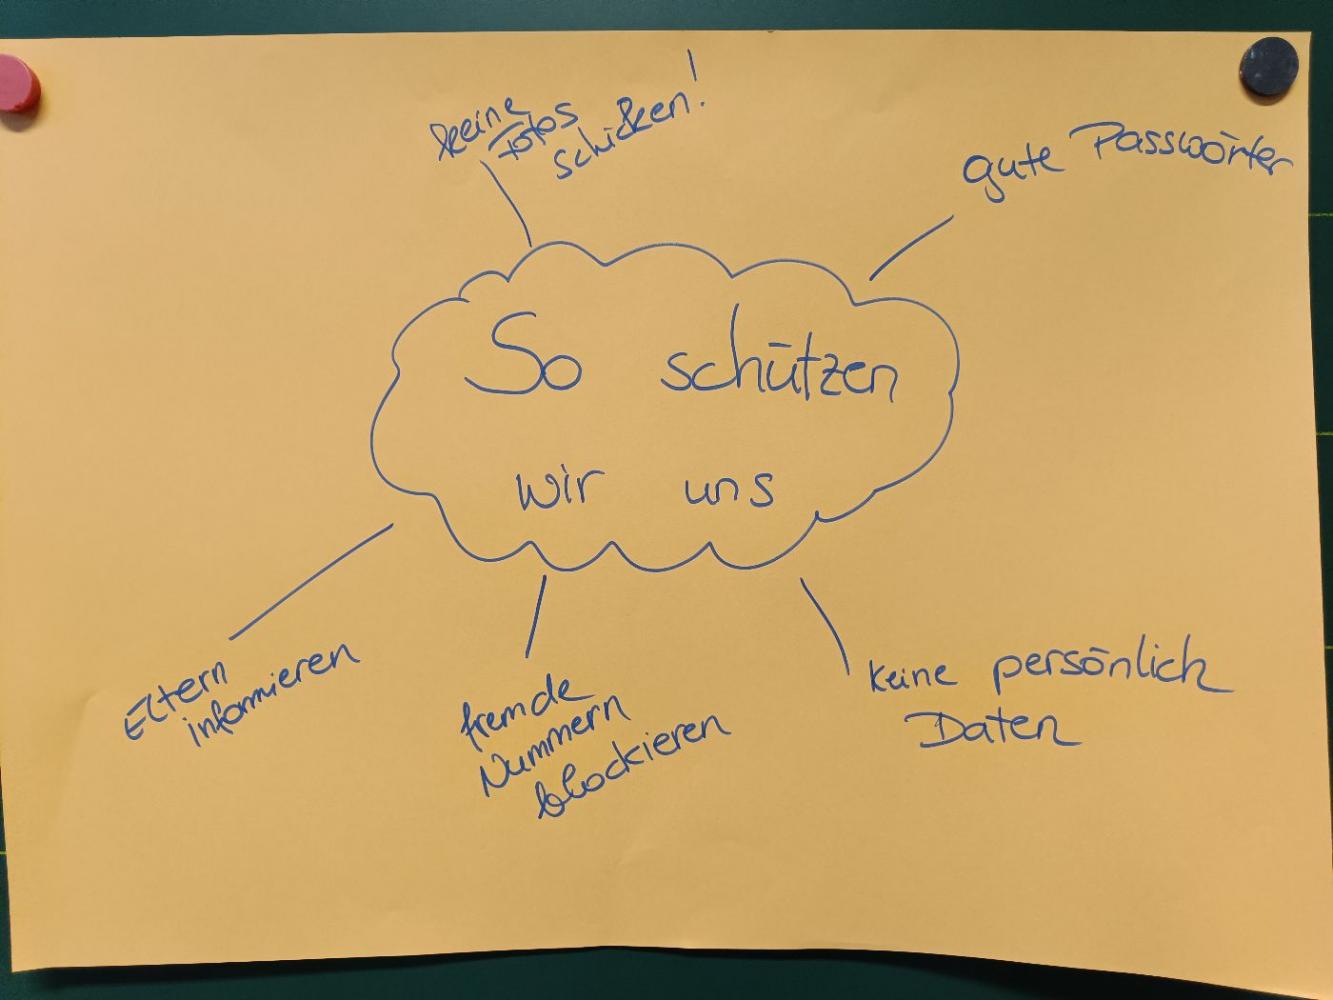 keine
Fotos
schicken!
gute Passwörter
So schützen
wir uns
Eltern
informieren
fremde
Nummern
blockieren
keine persönlich
Daten